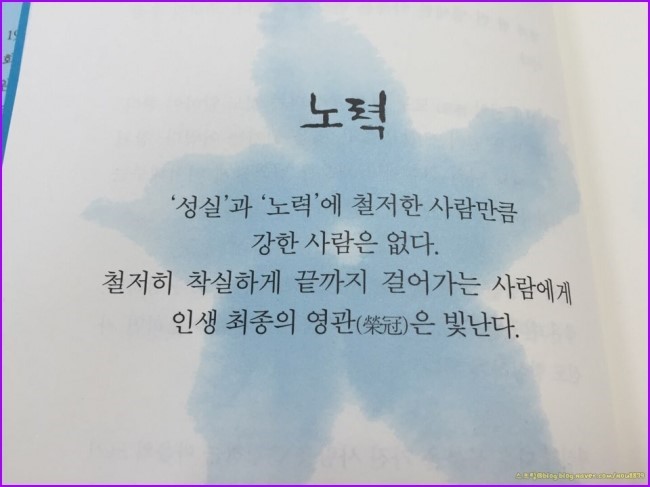 노력
‘성실’과 ‘노력’에 철저한 사람만큼
강한 사람은 없다.
철저히 착실하게 끝까지 걸어가는 사람에게
인생 최종의 영관(榮冠)은 빛난다.